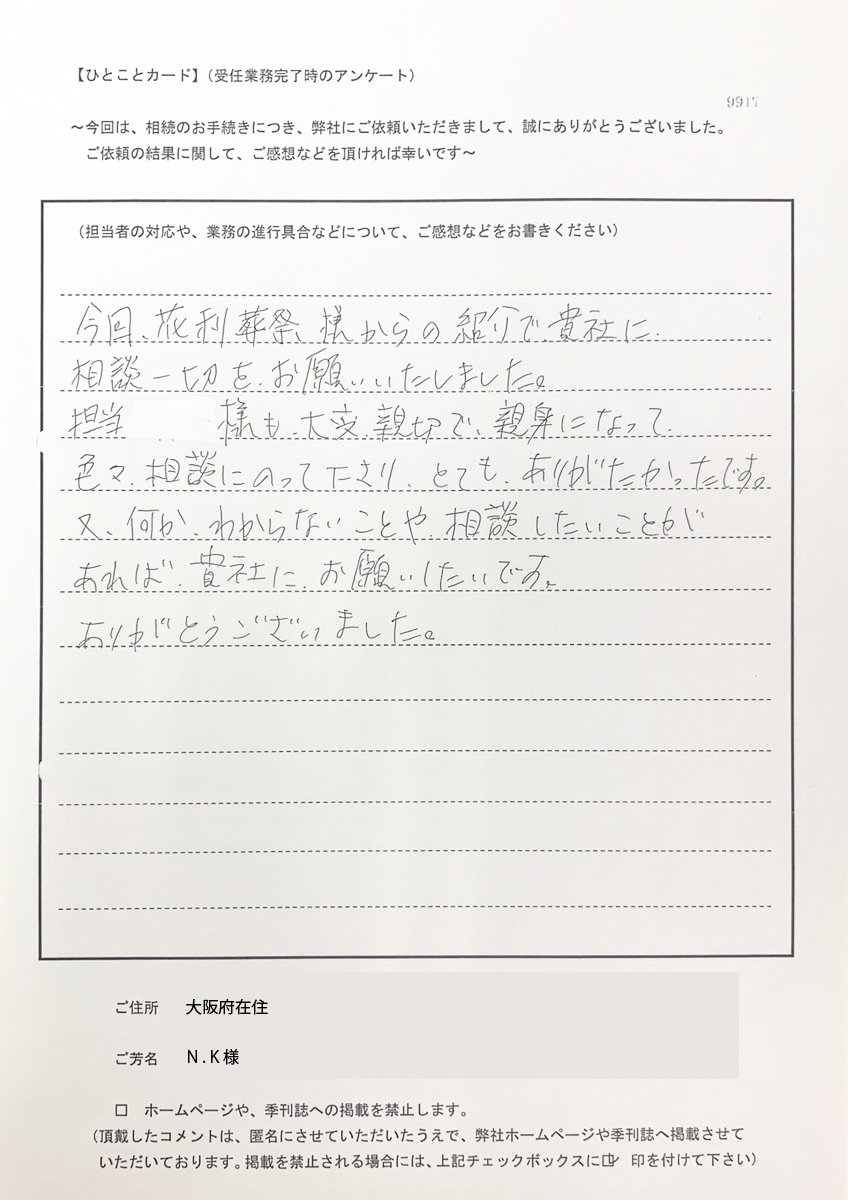 【ひとことカード】（受任業務完了時のアンケート）
9917
～今回は、相続のお手続きにつき、弊社にご依頼いただきまして、誠にありがとうございました。
ご依頼の結果に関して、ご感想などを頂ければ幸いです～
（担当者の対応や、業務の進行具合などについて、ご感想などをお書きください）
今回、花利葬祭様からの紹介で、貴社に、
相談一切を、お願いいたしました。
担当 様も、大変、親切で、親身になって、
色々、相談にのって下さり、とても、ありがたかったです。
又、何か、わからないことや、相談したいことが
あれば、貴社に、お願いしたいです。
ありがとうございました。
ご住所 大阪府在住
ご芳名 N.K様
□ ホームページや、季刊誌への掲載を禁止します。
（頂戴したコメントは、匿名にさせていただいたうえで、弊社ホームページや季刊誌へ掲載させて
いただいております。掲載を禁止される場合には、上記チェックボックスに☑ 印を付けて下さい）